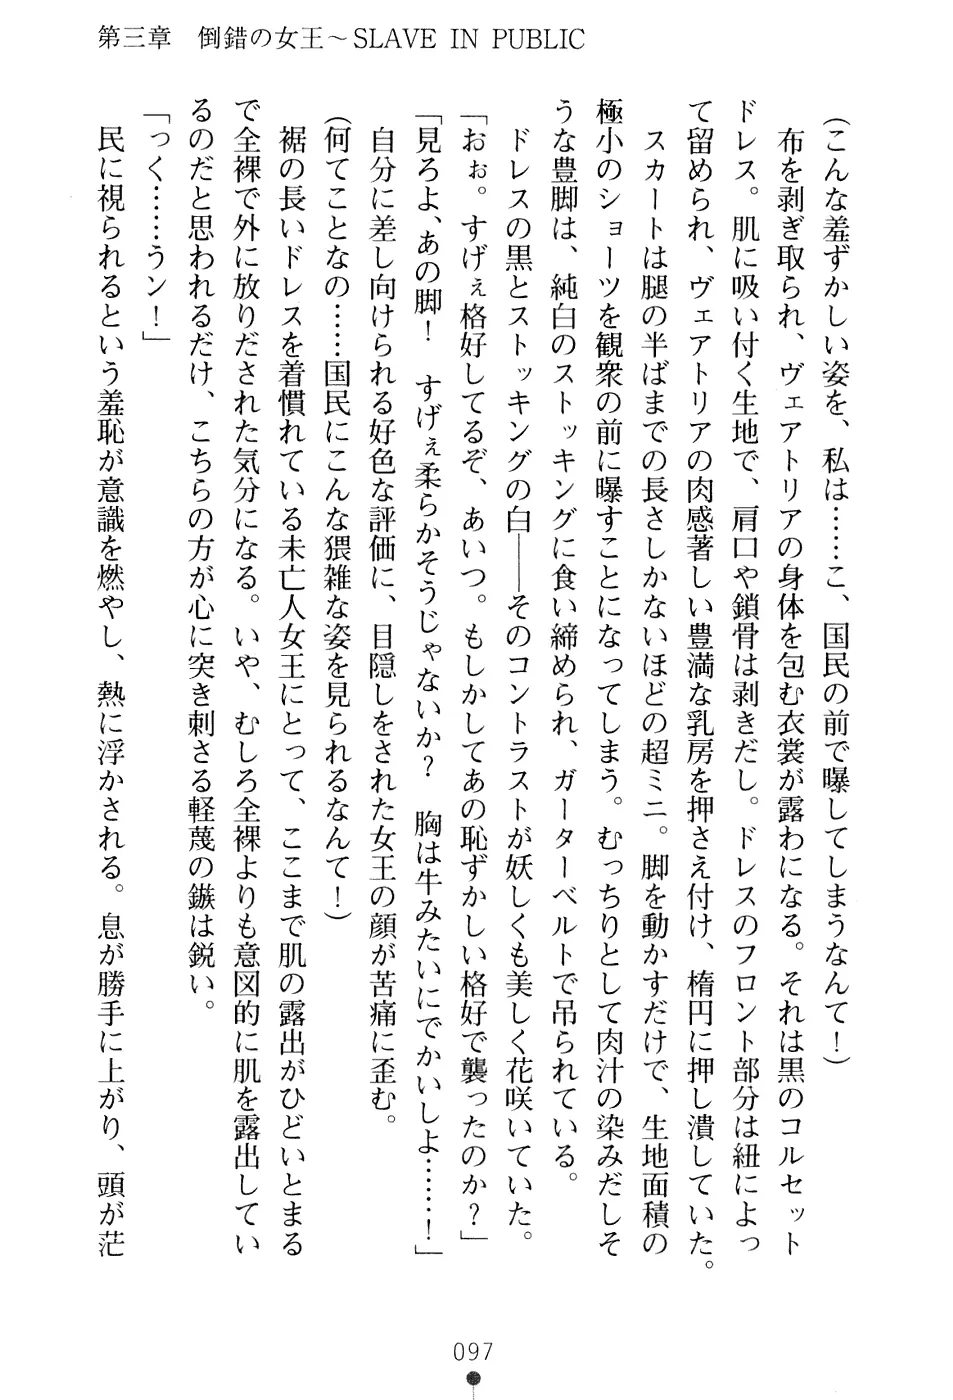 第三章　倒錯の女王～SLAVE IN PUBLIC
（こんな羞ずかしい姿を、私は……こ、国民の前で曝してしまうなんて！）
　布を剥ぎ取られ、ヴェアトリアの身体を包む衣裳が露わになる。それは黒のコルセット
ドレス。肌に吸い付く生地で、肩口や鎖骨は剥きだし。ドレスのフロント部分は紐によっ
て留められ、ヴェアトリアの肉感著しい豊満な乳房を押さえ付け、楕円に押し潰していた。
　スカートは腿の半ばまでの長さしかないほどの超ミニ。脚を動かすだけで、生地面積の
極小のショーツを観衆の前に曝すことになってしまう。むっちりとして肉汁の染みだしそ
うな豊脚は、純白のストッキングに食い締められ、ガーターベルトで吊られている。
　ドレスの黒とストッキングの白――そのコントラストが妖しくも美しく花咲いていた。
「おぉ。すげぇ格好してるぞ、あいつ。もしかしてあの恥ずかしい格好で襲ったのか？」
「見ろよ、あの脚！　すげぇ柔らかそうじゃないか？　胸は牛みたいにでかいしよ……！」
　自分に差し向けられる好色な評価に、目隠しをされた女王の顔が苦痛に歪む。
（何てことなの……国民にこんな猥雑な姿を見られるなんて！）
　裾の長いドレスを着慣れている未亡人女王にとって、ここまで肌の露出がひどいとまる
で全裸で外に放りだされた気分になる。いや、むしろ全裸よりも意図的に肌を露出してい
るのだと思われるだけ、こちらの方が心に突き刺さる軽蔑の鏃は鋭い。
「っく……うン！」
　民に視られるという羞恥が意識を燃やし、熱に浮かされる。息が勝手に上がり、頭が茫
097